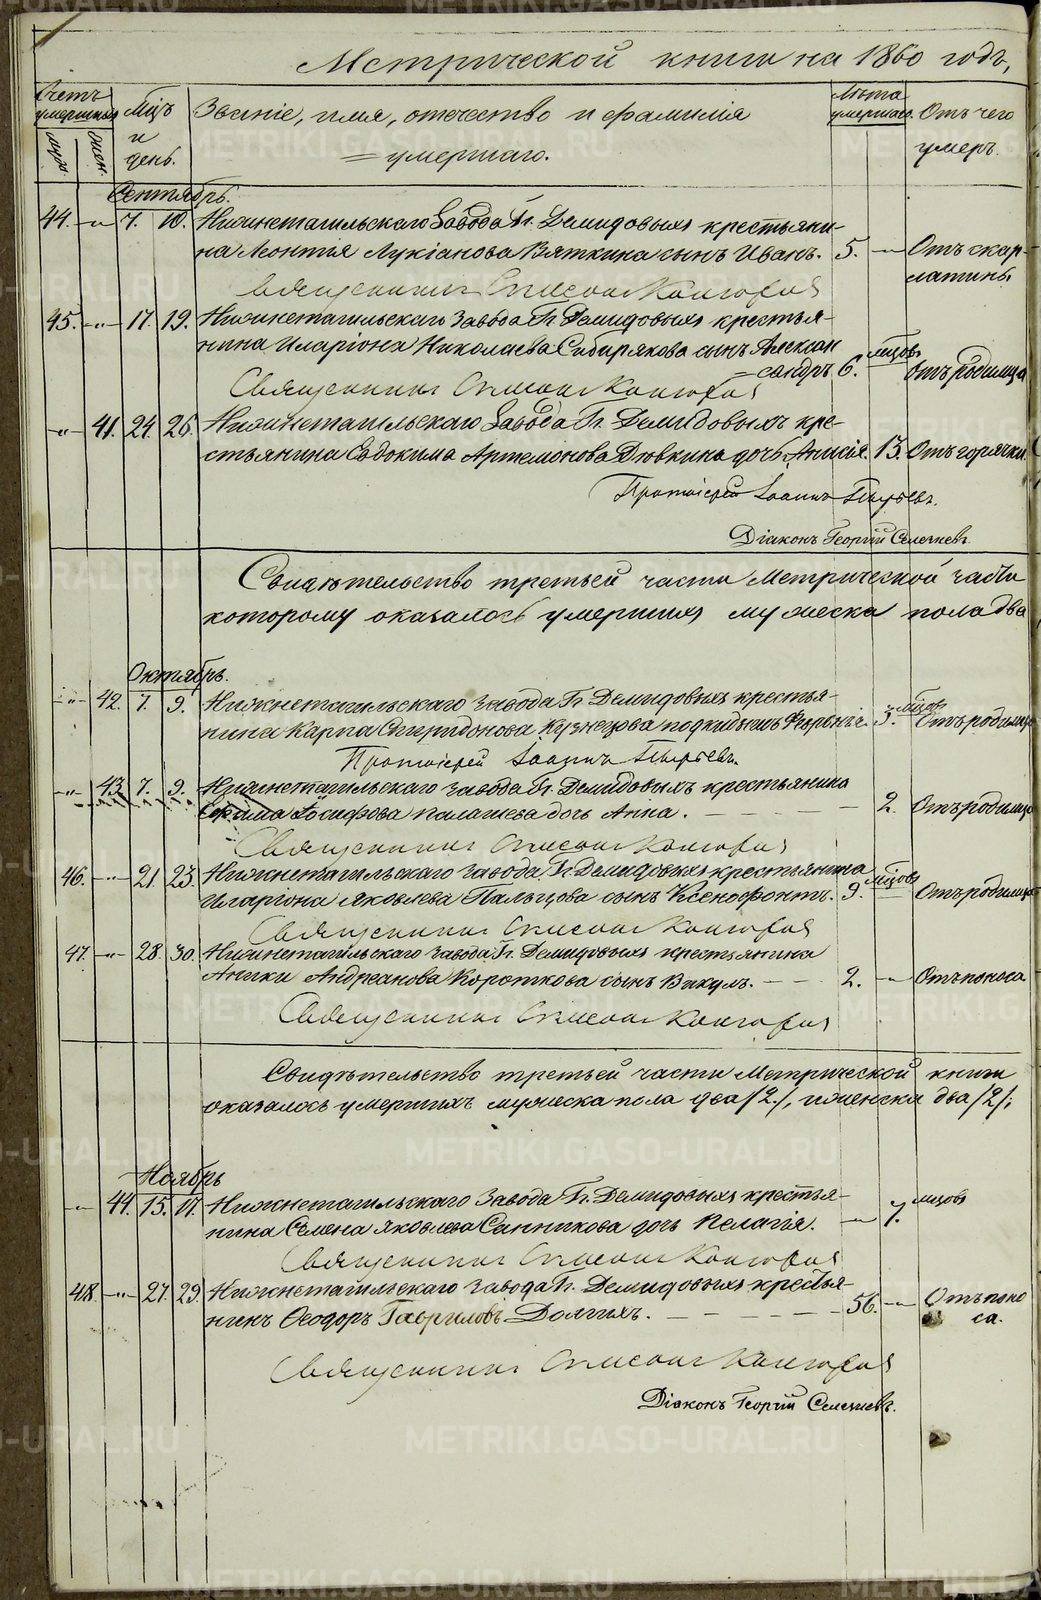 Метрической книги на 1860 годъ,
Счетъ умершихъ
Мцъ и день.
Званіе, имя, отчество и фамилія умершаго.
Лѣта умершаго.
Отъ чего умеръ.
Сентябрь.
44. -"- 7. 10. Нижнетагильскаго Завода Гг. Демидовыхъ крестьяни-
на Леонтія Лукіанова Вяткина сынъ Иванъ. 5. -"- Отъ скар-
латины.
Священникъ Симеонъ
45. -"- 17. 19. Нижнетагильскаго Завода Гг. Демидовыхъ крестья-
нина Иларіона Николаева Сибирякова сынъ Алексан
сандръ 6. мцовъ Отъ родимца
Священникъ Симеонъ
-"- 41. 24. 26. Нижнетагильскаго Завода Гг. Демидовыхъ кре-
стьянина Евдокима Артемонова дочь Анисія. 13. Отъ горячки
Протоіерей Іоаннъ
Діаконъ Георгій Селезневъ.
Свидѣтельство третьей части Метрической части
которому оказалось умершихъ мужеска пола два
Октябрь.
-"- 42. 7. 9. Нижнетагильскаго завода Гг. Демидовыхъ крестья-
нина Карпа Спиридонова Кузнецова подкидышъ 3. мцовъ Отъ родимца
Протоіерей Іоаннъ
-"- 43. 7. 9. Нижнетагильскаго завода Гг. Демидовыхъ крестьянина
Іосифова дочь Анна. 2. Отъ родимца
Священникъ Симеонъ
46. -"- 21. 23. Нижнетагильскаго завода Гг. Демидовыхъ крестьянина
Иларіона Яковлева Пальцова сынъ Ксенофонтъ. 9. мцовъ Отъ родимца
Священникъ Симеонъ
47. -"- 28. 30. Нижнетагильскаго завода Гг. Демидовыхъ крестьянина
Аники Андреанова Короткова сынъ Викулъ. 2. -"- Отъ поноса.
Священникъ Симеонъ
Свидѣтельство третьей части Метрической книги
оказалось умершихъ мужеска пола два /2./, и женска два /2/;
Ноябрь
-"- 44. 15. 17. Нижнетагильскаго Завода Гг. Демидовыхъ крестья-
нина Семена Яковлева Санникова дочь Пелагія. -"- 7. мцовъ
Священникъ Симеонъ
48. -"- 27. 29. Нижнетагильскаго завода Гг. Демидовыхъ крестья-
нинъ Ѳеодоръ Гавриловъ Долгихъ. 56. -"- Отъ поно
са.
Священникъ Симеонъ
Діаконъ Георгій Селезневъ.
METRIKI.GASO-URAL.RU